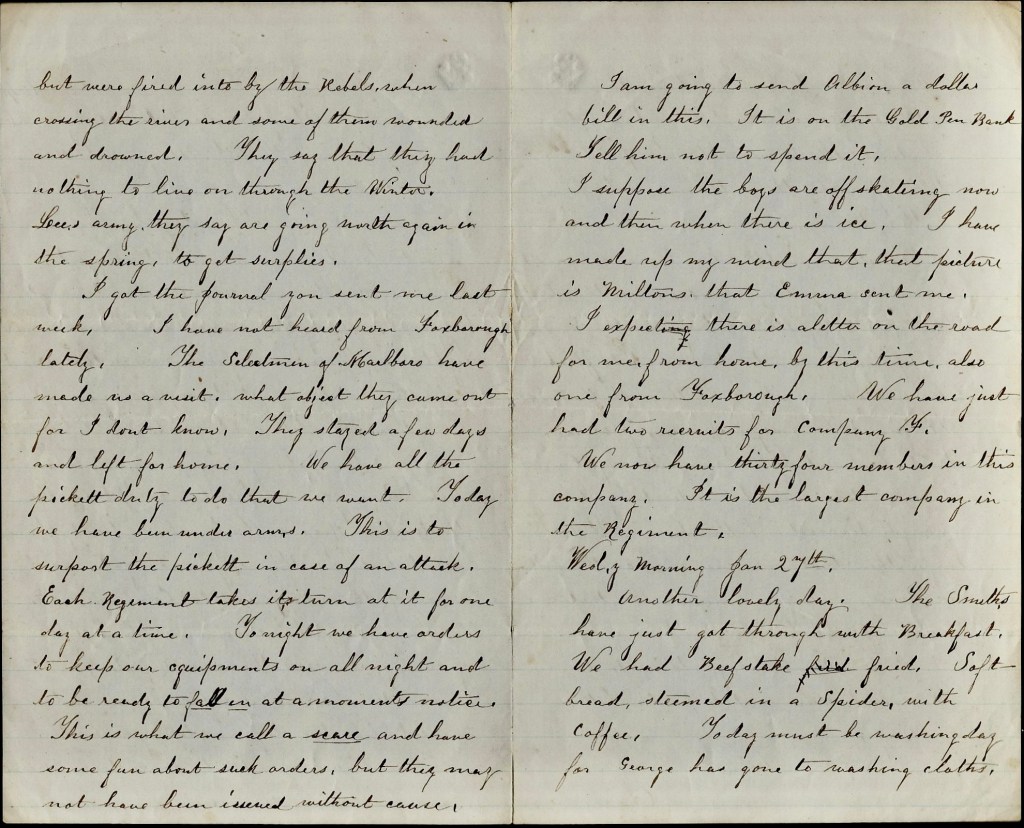 but were fired into by the Rebels, when
crossing the river and some of them wounded
and drowned. They say that they had
nothing to live on through the Winter.
Lees army, they say are going north again in
the spring, to get surplies.
I got the Journal you sent me last
week. I have not heard from Foxborough
lately. The Selectmen of Marlboro have
made us a visit. what object they came out
for I dont know. They stayed a few days
and left for home. We have all the
pickett duty to do that we want. Today
we have been under arms. This is to
surport the pickett in case of an attack.
Each Regiment takes its turn at it for one
day at a time. Tonight we have orders
to keep our equipments on all night and
to be ready to fall in at a moments notice.
This is what we call a scare and have
some fun about such orders, but they may
not have been issued without cause.
I am going to send Albion a dollar
bill in this. It is on the Gold Pen Bank
Tell him not to spend it.
I suppose the boys are off skateing now
and then when there is ice. I have
made up my mind that, that picture
is Miltons. that Emma sent me.
I expecting there is a letter on the road
for me, from home, by this time, also
one from Foxborough. We have just
had two recruits for Company F.
We now have thirty four members in this
company. It is the largest company in
the Regiment.
Wed,y Morning Jan 27th.
Another lovely day. The Smiths
have just got through with Breakfast.
We had Beefstake fried. Soft
bread, steemed in a Spider, with
Coffee. Today must be washing day
for George has gone to washing cloths.